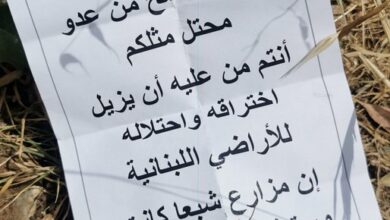 من عدو
محتل مثلكم
أنتم من عليه أن يزيل
اختراقه واحتلاله
للأراضي اللبنانية
إن مزارع شبعا